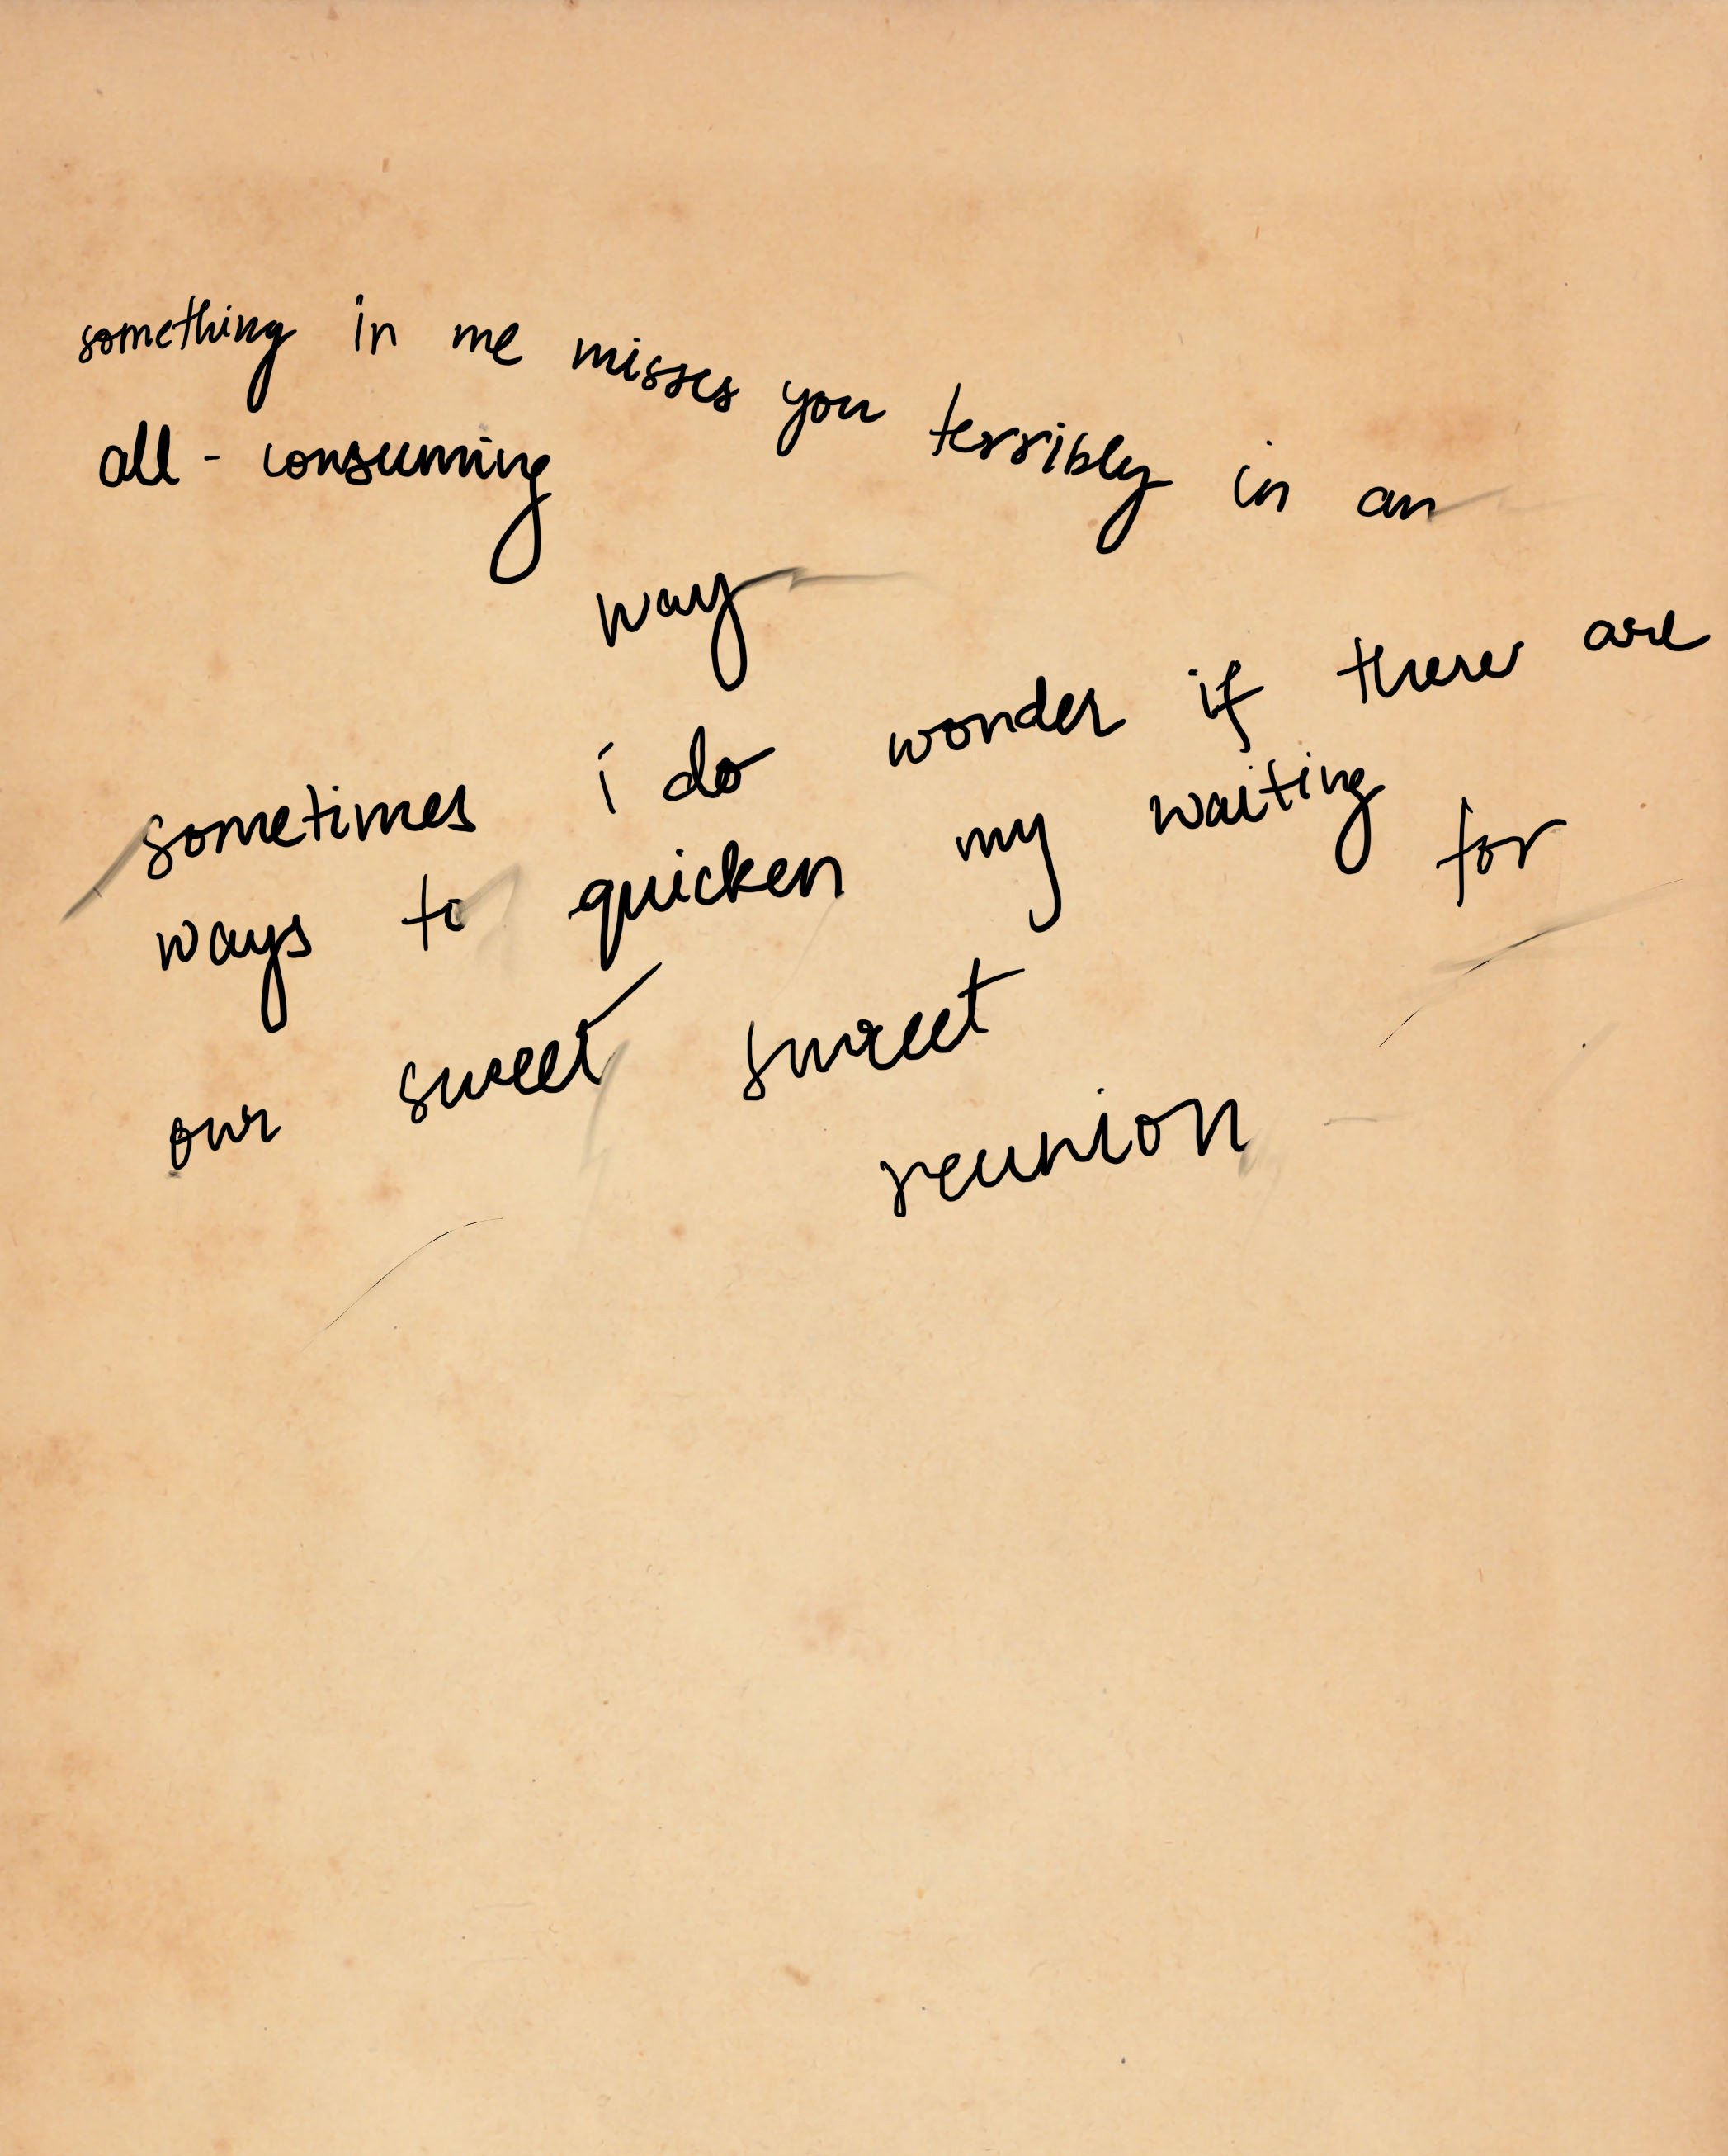 something in me misses you terribly in an
all - consuming
way
sometimes i do wonder if there are
ways to quicken my waiting for
our sweet sweet
reunion